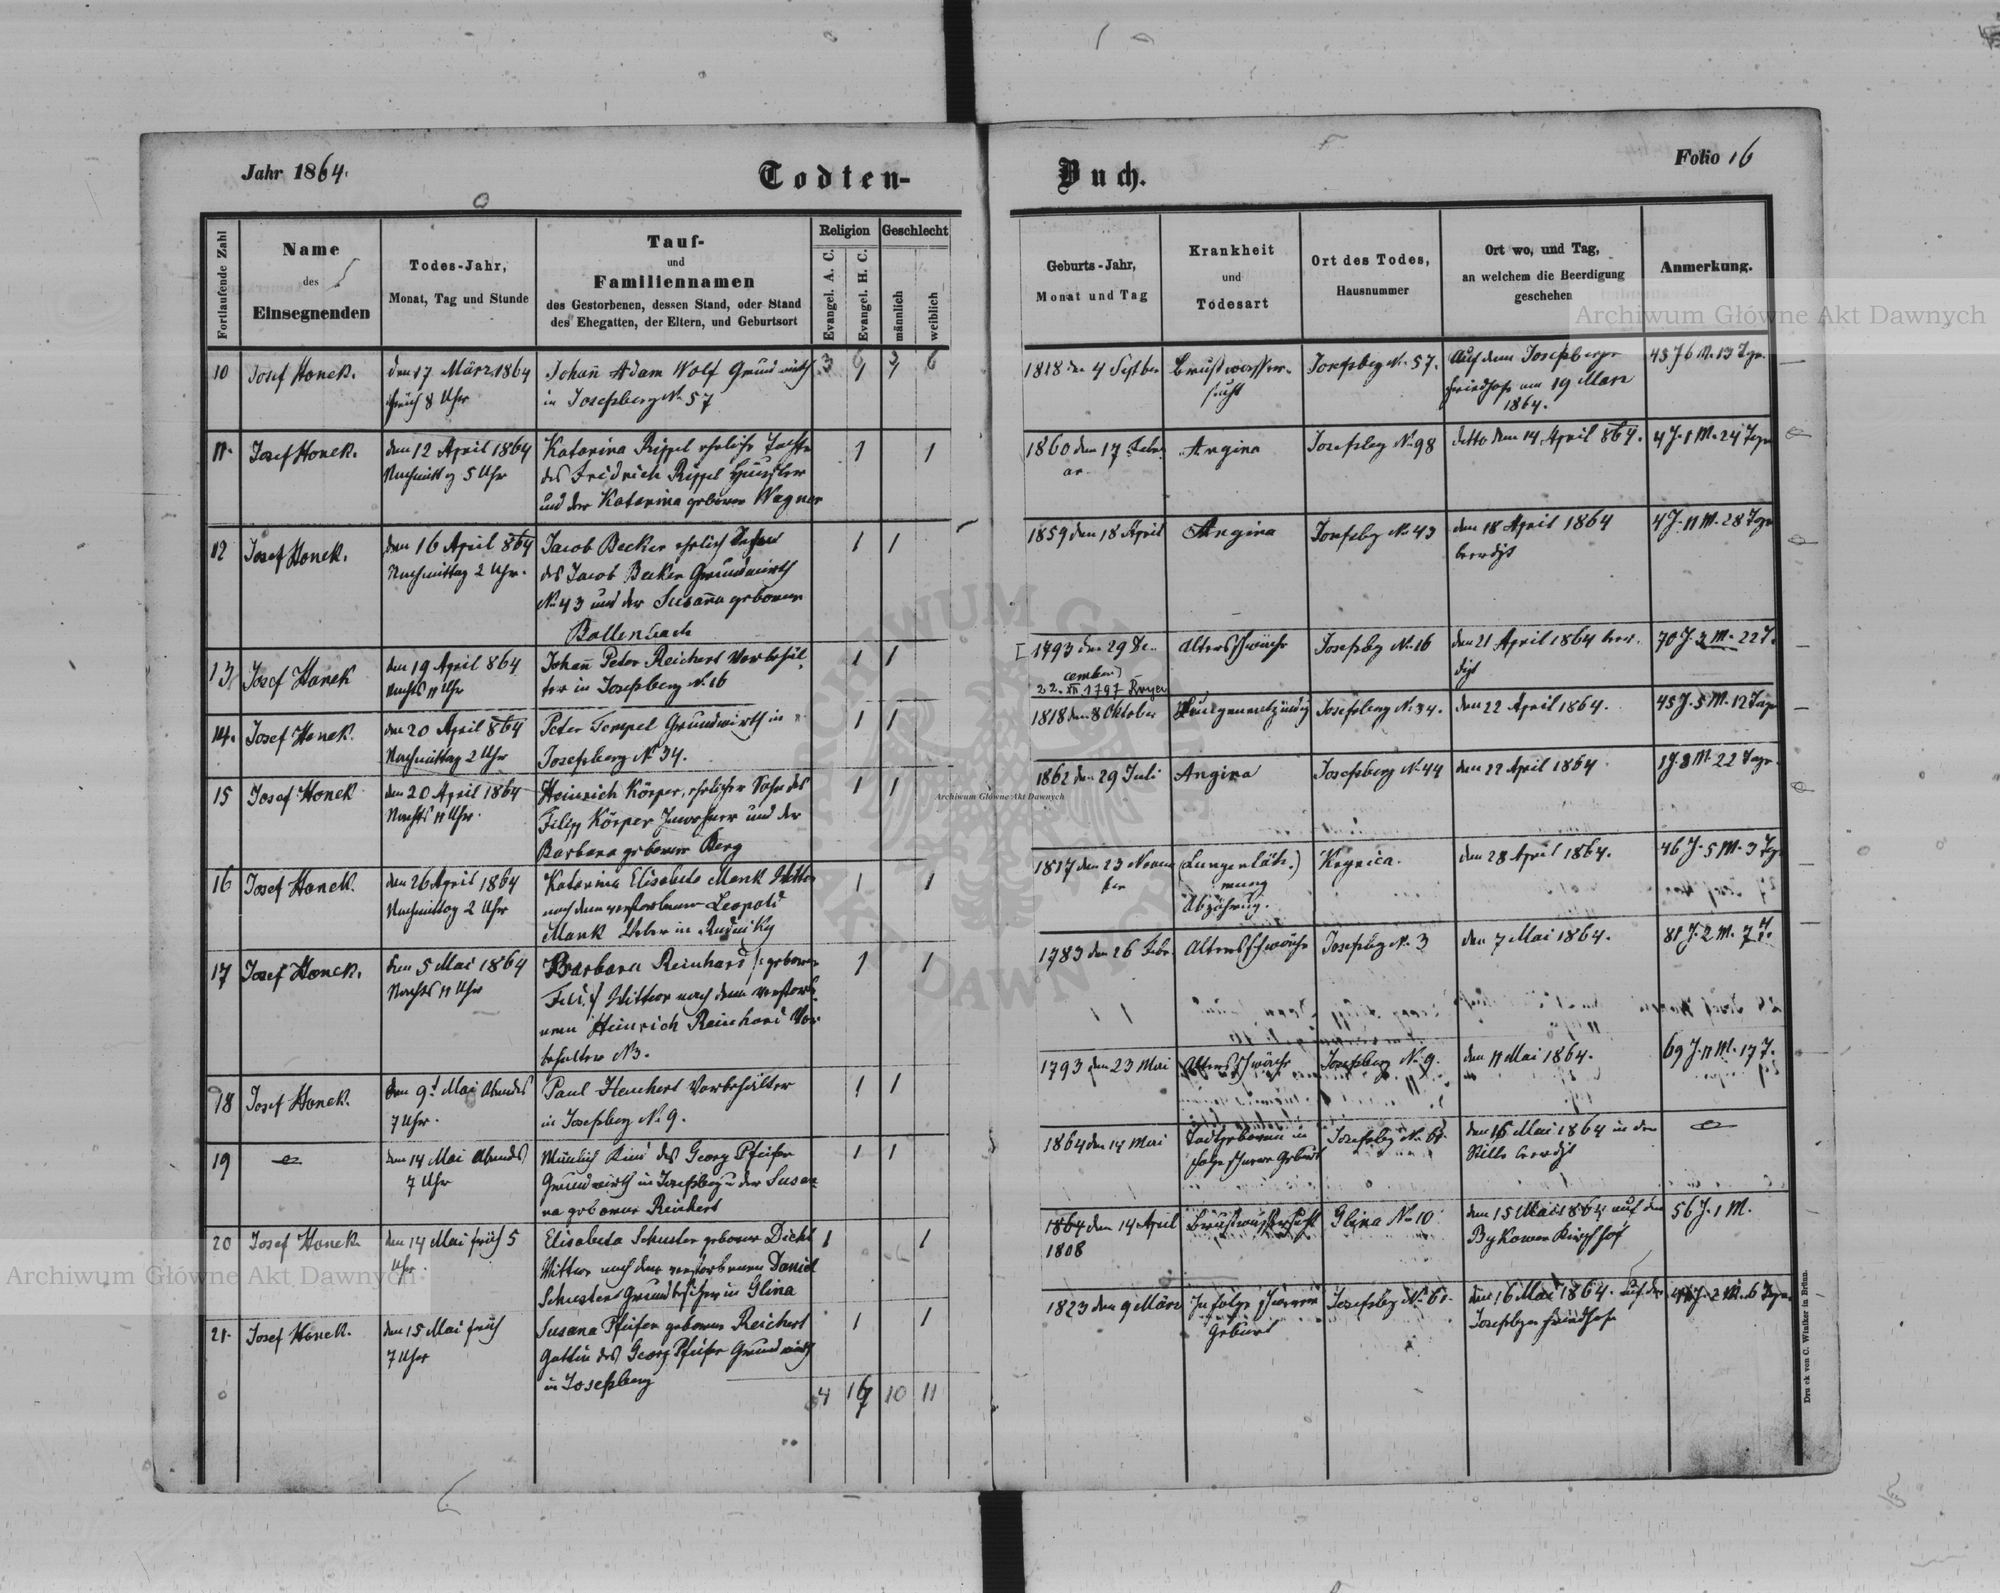 Jahr 1864.
Todten-
Buch.
Folio 16
Fortlaufende Zahl
Name
des
Einsegnenden
Todes-Jahr,
Monat, Tag und Stunde
Tauf-
und
Familiennamen
des Gestorbenen, dessen Stand, oder Stand
des Ehegatten, der Eltern, und Geburtsort
Religion
Evangel. A. C.
Evangel. H. C.
Geschlecht
männlich
weiblich
Geburts-Jahr,
Monat und Tag
Krankheit
und
Todesart
Ort des Todes,
Hausnummer
Ort wo, und Tag,
an welchem die Beerdigung
geschehen
Anmerkung.
Archiwum Główne Akt Dawnych
10 Josef Honek. den 17 März 1864 Johañ Adam Wolf Grundwirth 3 6
früh 8 Uhr in Josefsberg No 57
1818 den 4 Septber Brustwasser- Josefsbeg No 57. Auf dem Josefsberger 45 J 6 M. 13 Tge.
sucht Friedhofe am 19 März
1864.
11. Josef Honek. den 12 April 1864 Katarina Rippel eheliche Tochter 1 1
Nachmittg 5 Uhr des Fridrich Rippel Häusler
und der Katarina geborene Wagner
1860 den 17 Febru Angina Josefsbeg No 98 detto den 14 April 864. 4 J. 1 M. 24 Tage
ar.
12 Josef Honek. den 16 April 864 Jacob Becker ehelich 1 1
Nachmittag 2 Uhr. des Jacob Becker Grundwirth
No 43 und der Susaña geborene
Bollenbach
1859 den 18 April Angina Josefsbg No 43 den 18 April 1864 4 J. 11 M. 28 Tge
beerdigt
13 Josef Honek den 19 April 864 Johañ Peter Reichert Vorbehäl- 1 1
Nachts 11 Uhr ter in Josefsberg No 16
[1793 den 29 De- Altersschwäche Josefsbg No 16 den 21 April 1864 beer- 70 J. 3 M. 22 T.
cember) digt
22. XII. 1797
14. Josef Honek. den 20 April 864 Peter Tempel Grundwirth in 1 1
Nachmittag 2 Uhr Josefsberg No 34.
1818 den 8 Oktober Lungenentzündg Josefsberg No 34. den 22 April 1864. 45 J. 5 M. 12 Tage
15 Josef Honek den 20 April 1864 Heinrich Körper, ehelicher Sohn des 1 1
Nachts 11 Uhr. Filip Körper Inwohner und der
Barbara geborene Berg
1862 den 29 Juli Angina Josefsberg No 44 den 22 April 1864 1 J. 8 M. 22 Tage.
16 Josef Honek. den 26 April 1864 Katarina Elisabeta Mank Witwe 1 1
Nachmittag 2 Uhr nach dem verstorbenen Leopold
Mank Weber in
1817 den 23 Novem (Lungenläh- Krynica. den 28 April 1864. 46 J. 5 M. 3 Tg.
ber mung)
Abzehrung.
17 Josef Honek. den 5 Mai 1864 Barbara Reinhard geborene 1 1
Nachts 11 Uhr Wittwe nach dem verstorb-
enen Heinrich Reinhard Vor-
behalter N3.
1783 den 26 Febr. Altersschwäche Josefsbg No 3 den 7 Mai 1864. 81 J. 2 M. 7 T.
18 Josef Honek. den 9t Mai Abends Paul Heuchert Vorbehälter 1 1
7 Uhr. in Josefsberg No 9.
1793 den 23 Mai Altersschwäche Josefsberg No 9. den 11 Mai 1864. 69 J. 11 M. 17 T.
19 den 14 Mai Abends Mänlich Kind des Georg Pfeifer 1 1
7 Uhr Grundwirth in Josefsberg u der Susan-
na geborene Reichert
1864 den 14 Mai Todtgeboren in Josefsbg No 61. den 15 Mai 1864 in der
Folge schwerer Geburt Stille beerdigt
20 Josef Honek den 14 Mai früh 5 Elisabeta Schuster geborene Dickl 1 1
Uhr. Wittwe nach dem verstorbenen Daniel
Schuster Grundbesitzer in Glina
1864 den 14 April Brustwassersucht Glina No 10 den 15 Mai 1864 auf dem 56 J. 1 M.
1808 Bykower Kirchhof
21. Josef Honek. den 15 Mai früh Susana Pfeifer geborene Reichert 1 1
7 Uhr Gattin des Georg Pfeifer Grundwirth
in Josefsberg
1823 den 9 März In folge schwerer Josefsbg No 61. den 16 Mai 1864. auf dem 41 J. 2 M. 6 Tage.
Geburt Josefsbger Friedhofe
4 17 10 11
Druck von C. Winiker in Brünn.
Archiwum Główne Akt Dawnych
Archiwum Główne Akt Dawnych
ARCHIWUM GŁÓWNE AKT DAWNYCH